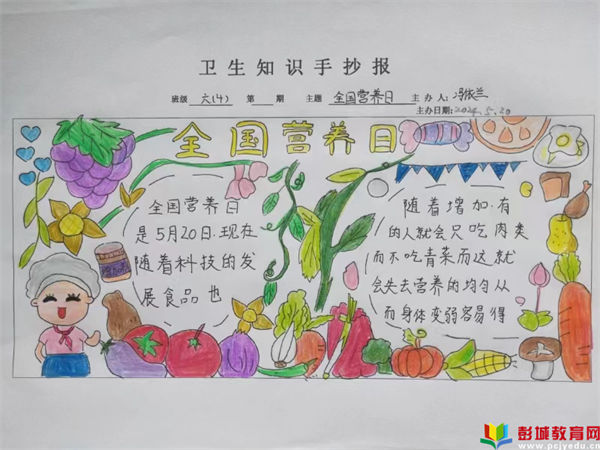 卫生知识手抄报
班级 六(4) 第 期 主题 全国营养日 主办人:
主办日期:2024.5.20
全国营养日
全国营养日
是5月20日.现在
随着科技的发
展食品也
随着增加.有
的人就会只吃肉类
而不吃青菜而这就
会失去营养的均匀从
而身体变弱容易得
彭城教育网
www.pcjyedu.cn